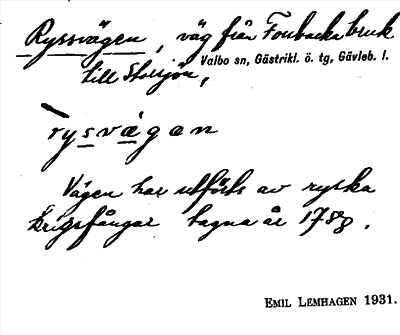 Ryssvägen, väg från Forsbacka bruk
Valbo sn, Gästrikl. ö. tg, Gävleb. l.
till Storsjön,
rysvägan
Vägen har utförts av ryska
krigsfångar tagna år 1788.
EMIL LEMHAGEN 1931.